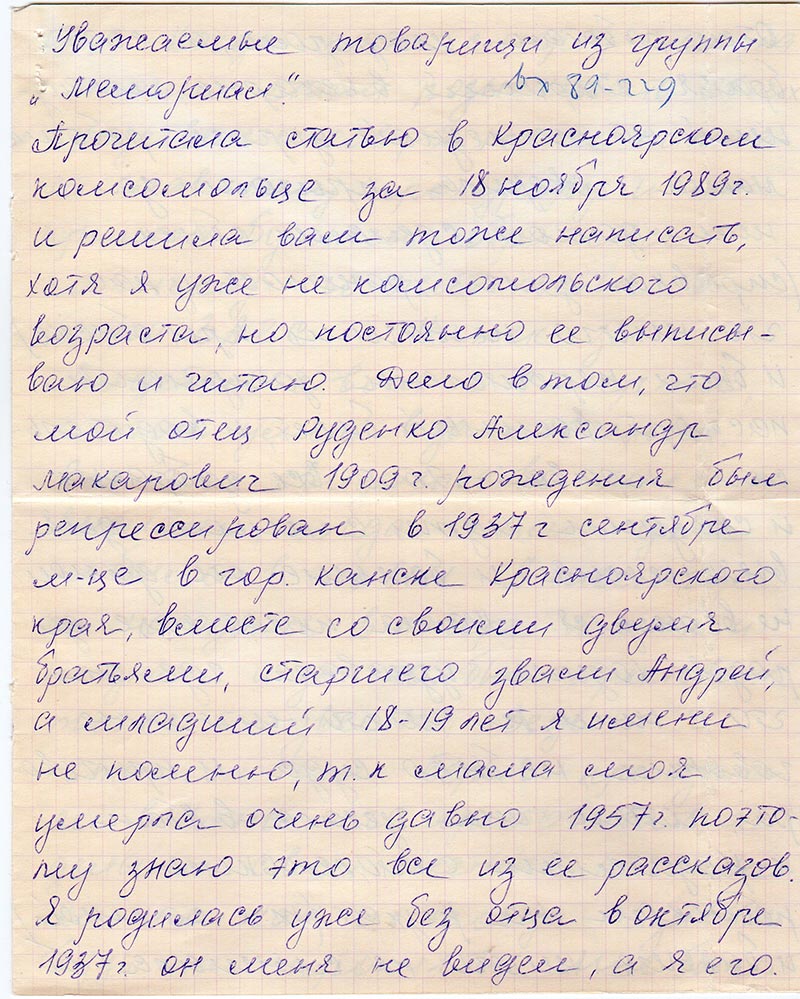 Уважаемые товарищи из группы
„Мемориал".
вх 89-229
Прочитала статью в Красноярском
комсомольце за 18 ноября 1989г.
и решила вам тоже написать,
хотя я уже не комсомольского
возраста, но постоянно ее выписы-
ваю и читаю. Дело в том, что
мой отец Руденко Александр
Макарович 1909 г. рождения был
репрессирован в 1937 г сентябре
м-це в гор. Канске Красноярского
края, вместе со своими двумя
братьями, старшего звали Андрей,
а младший 18-19 лет я имени
не помню, т.к мама моя
умерла очень давно 1957г. поэто-
му знаю это все из ее рассказов.
Я родилась уже без отца в октябре
1937г. он меня не видел, а я его.